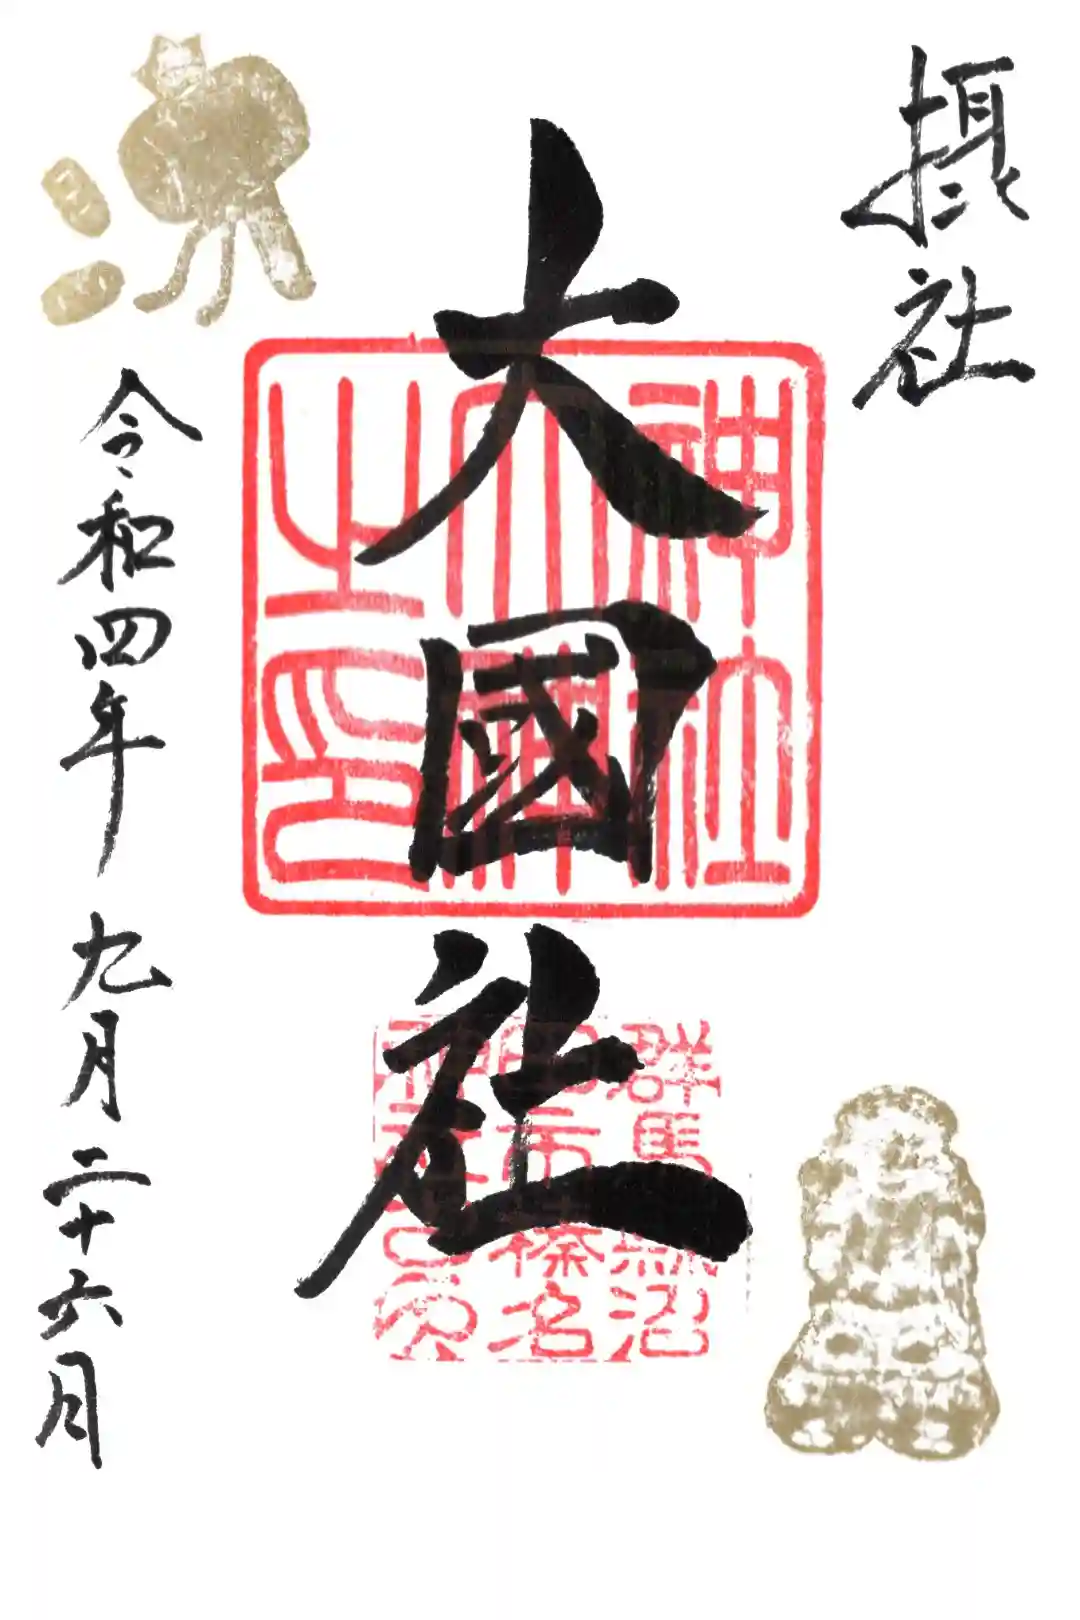 摂社
大國社
令和四年 九月二十六日
神社
之印
群馬縣沼
田市榛名